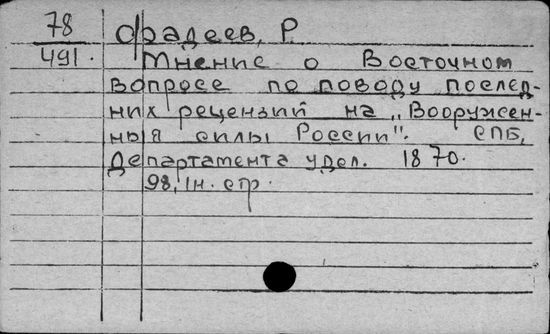 78 Фадеев, Р.
491. Мнение о Восточном
вопросе по поводу послед-
них рецензий на „Вооружен-
ныя силы России". СПБ,
Департамента удел. 1870.
98, Iн. стр.